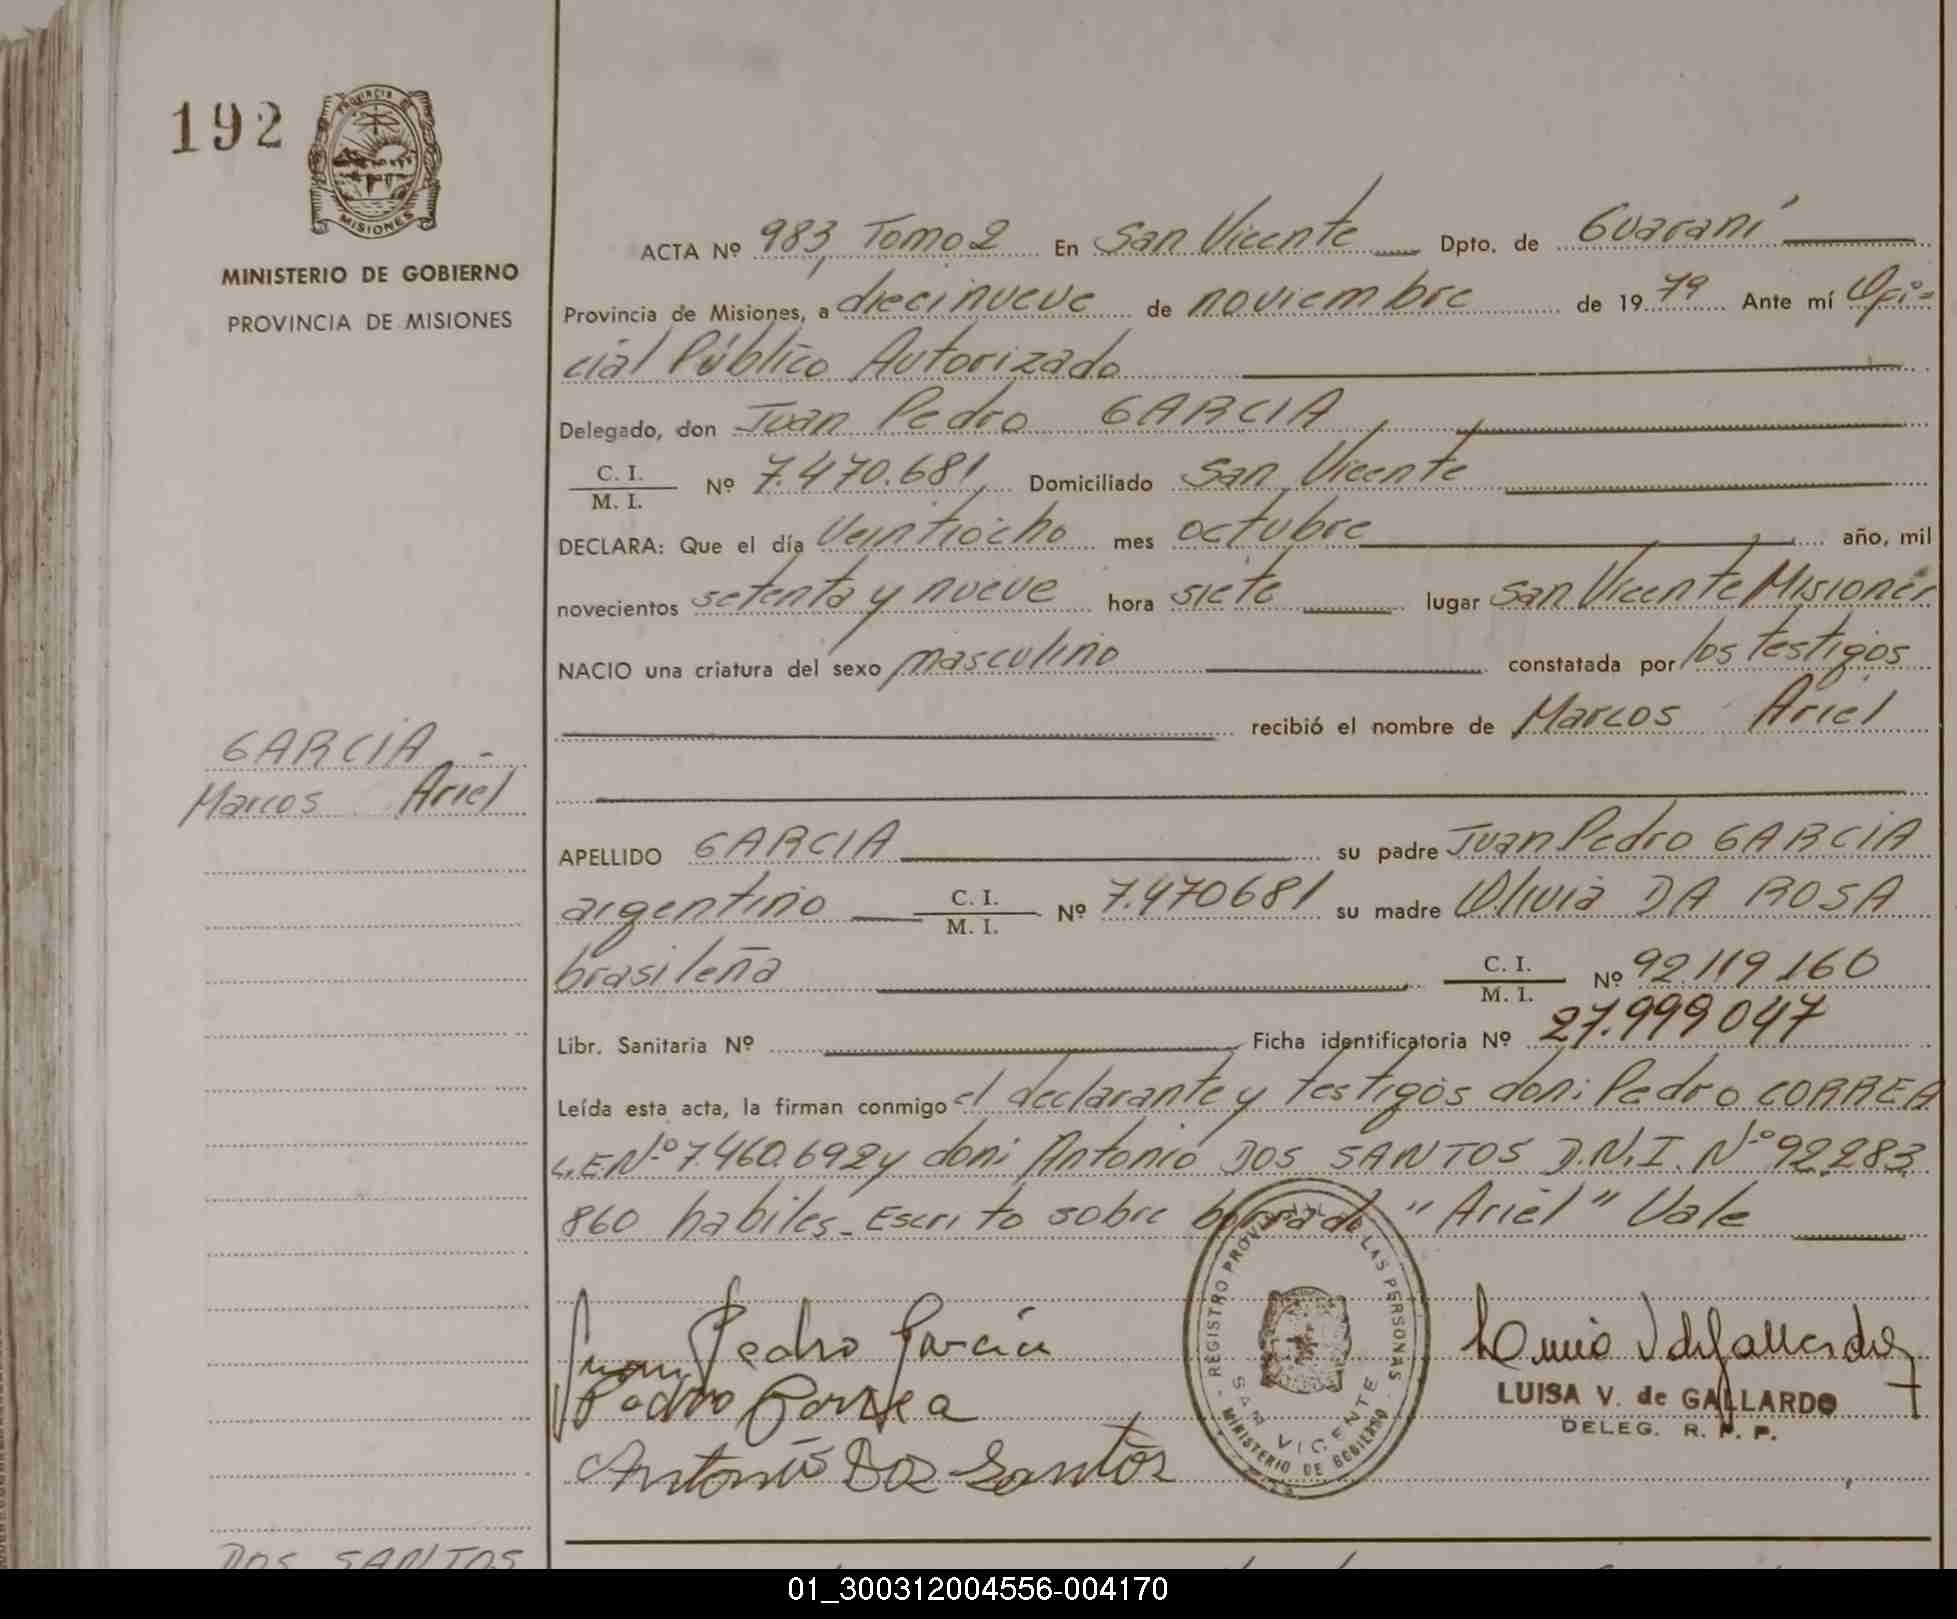 192
PROVINCIA DE
MISIONES
MINISTERIO DE GOBIERNO
PROVINCIA DE MISIONES
ACTA Nº 983, Tomo 2 En San Vicente Dpto. de Guaraní
Provincia de Misiones, a diecinueve de noviembre de 1979 Ante mí Ofi=
cial Público Autorizado
Delegado, don Juan Pedro GARCIA,
C. I.
M. I. Nº 7.470.681, Domiciliado San Vicente
DECLARA: Que el día Veintiocho mes octubre año, mil
novecientos setenta y nueve hora siete lugar San Vicente Misiones
NACIO una criatura del sexo masculino constatada por los testigos
recibió el nombre de Marcos Ariel
GARCIA -
Marcos Ariel
APELLIDO GARCIA su padre Juan Pedro GARCIA
argentino C. I.
M. I. Nº 7.470681 su madre Olivia DA ROSA
brasileña C. I.
M. I. Nº 92.119.160
Libr. Sanitaria Nº Ficha identificatoria Nº 27.999047
Leída esta acta, la firman conmigo el declarante y testigos don: Pedro CORREA
L.E.Nº 7.460.692 y don: Antonio DOS SANTOS D.N.I. Nº 92.283.
860 habiles_ Escrito sobre borrado "Ariel" Vale
Juan Pedro Garcia
Pedro Correa
Antonio Dos Santos
REGISTRO PROVINCIAL DE LAS PERSONAS
SAN VICENTE
MINISTERIO DE GOBIERNO
LUISA V. de GALLARDO
DELEG. R. P. P.
DOS SANTOS
01_300312004556-004170